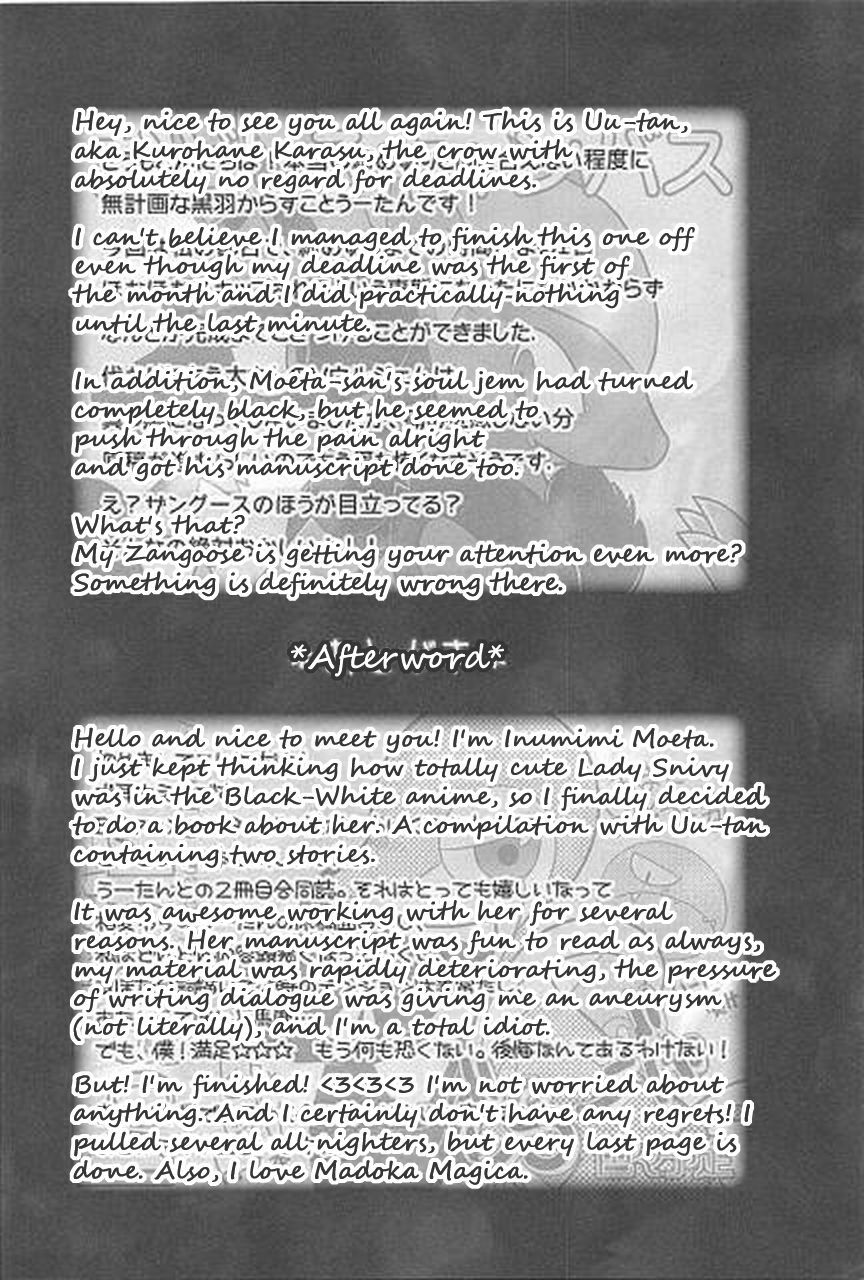 Hey, nice to see you all again! This is Uu-tan,
aka Kurohane Karasu, the crow with
absolutely no regard for deadlines.
い程度に
バス
無計画な黒羽からすことうーたんです！
I can't believe I managed to finish this one off
even though my deadline was the first of
the month and I did practically nothing
until the last minute.
ことができました.
In addition, Moeta-san's soul jem had turned
completely black, but he seemed to
push through the pain alright
and got his manuscript done too.
え？ザングースのほうが目立ってる？
What's that?
My Zangoose is getting your attention even more?
Something is definitely wrong there.
*Afterword*
Hello and nice to meet you! I'm Inumimi Moeta.
I just kept thinking how totally cute Lady Snivy
was in the Black-White anime, so I finally decided
to do a book about her. A compilation with Uu-tan
containing two stories.
うーたんとの2冊目合同誌。それはとっても嬉しいなって
It was awesome working with her for several
reasons. Her manuscript was fun to read as always,
my material was rapidly deteriorating, the pressure
of writing dialogue was giving me an aneurysm
(not literally), and I'm a total idiot.
でも、僕！満足☆☆☆ もう何も恐くない。後悔なんてあるわけない！
But! I'm finished! <3<3<3 I'm not worried about
anything. And I certainly don't have any regrets! I
pulled several all nighters, but every last page is
done. Also, I love Madoka Magica.